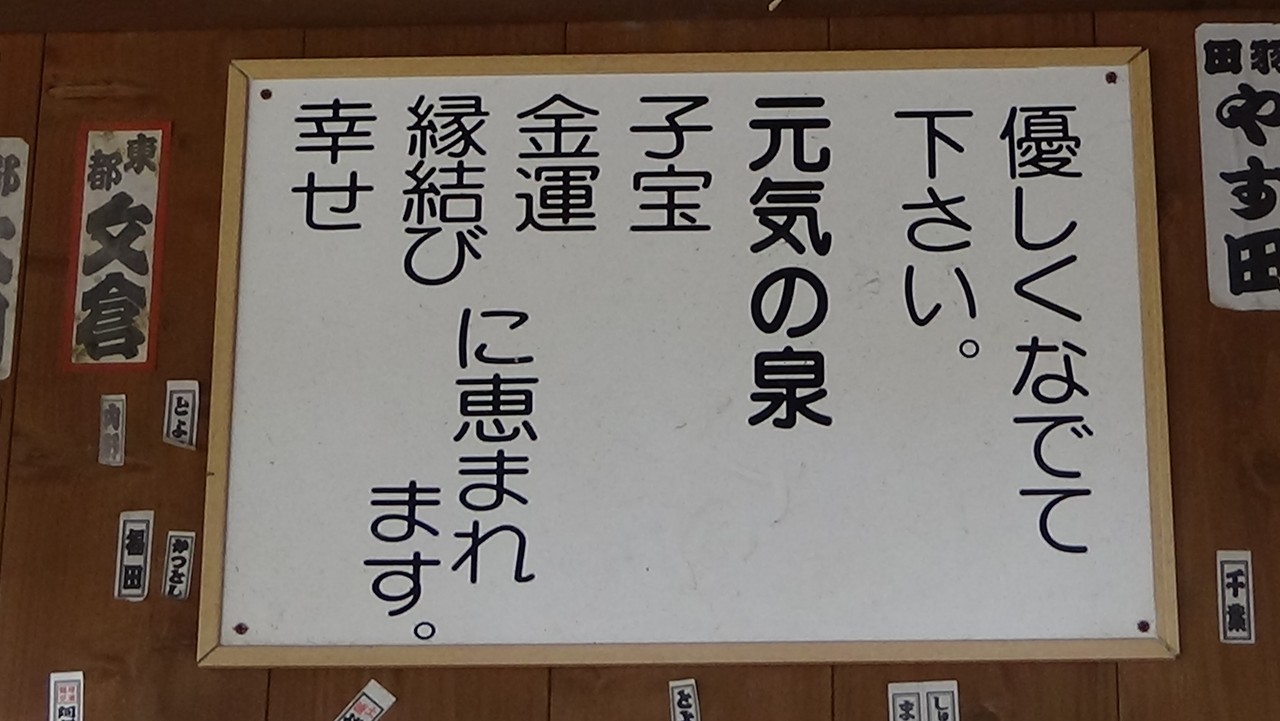 優しくなでて
下さい。
元気の泉
子宝
金運
縁結び
幸せ
に恵まれ
ます。
東都
文倉
やす田
とよ
福田
かつとし
千葉